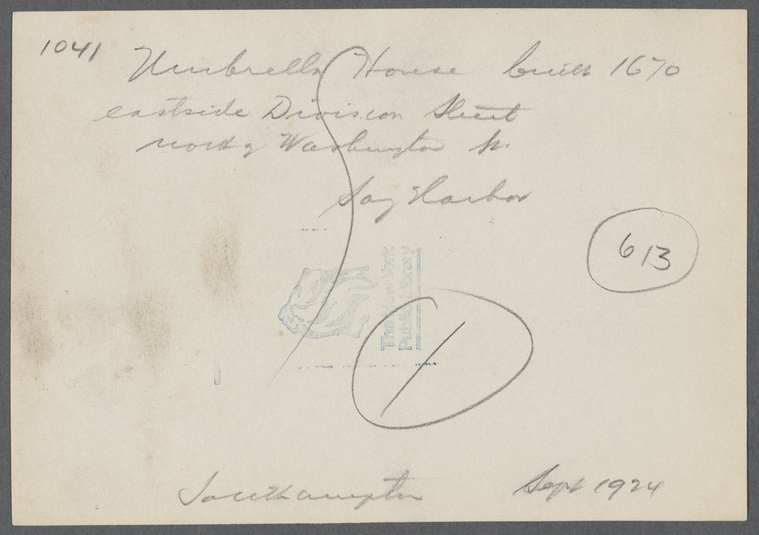 1041
Umbrella House built 1670
eastside Division Street
north of Washington St.
Sag Harbor
613
The New York
Public Library
1
Southampton Sept 1924